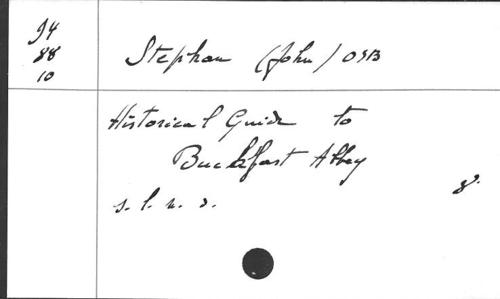 J4
88
10
Stephan (John) OSB
Historical Guide to
Buckfast Abbey
s. l. n. d.
8°